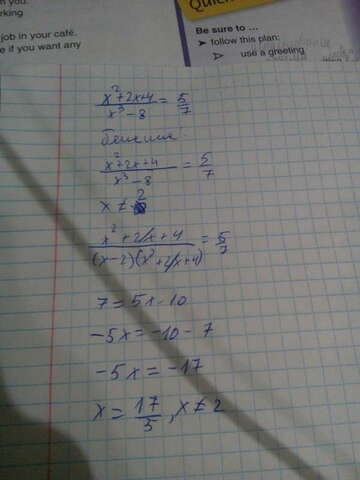 n you.
rking
job in your café.
e if you want any
Quick
Be sure to ...
➤ follow this plan:
use a greeting
x²+2x+4 / x³-8 = 5/7
x²+2x+4 / x³-8 = 5/7
x ≠ 2
x²+2x+4 / (x-2)(x²+2x+4) = 5/7
7 = 5x-10
-5x = -10-7
-5x = -17
x = 17/5, x ≠ 2